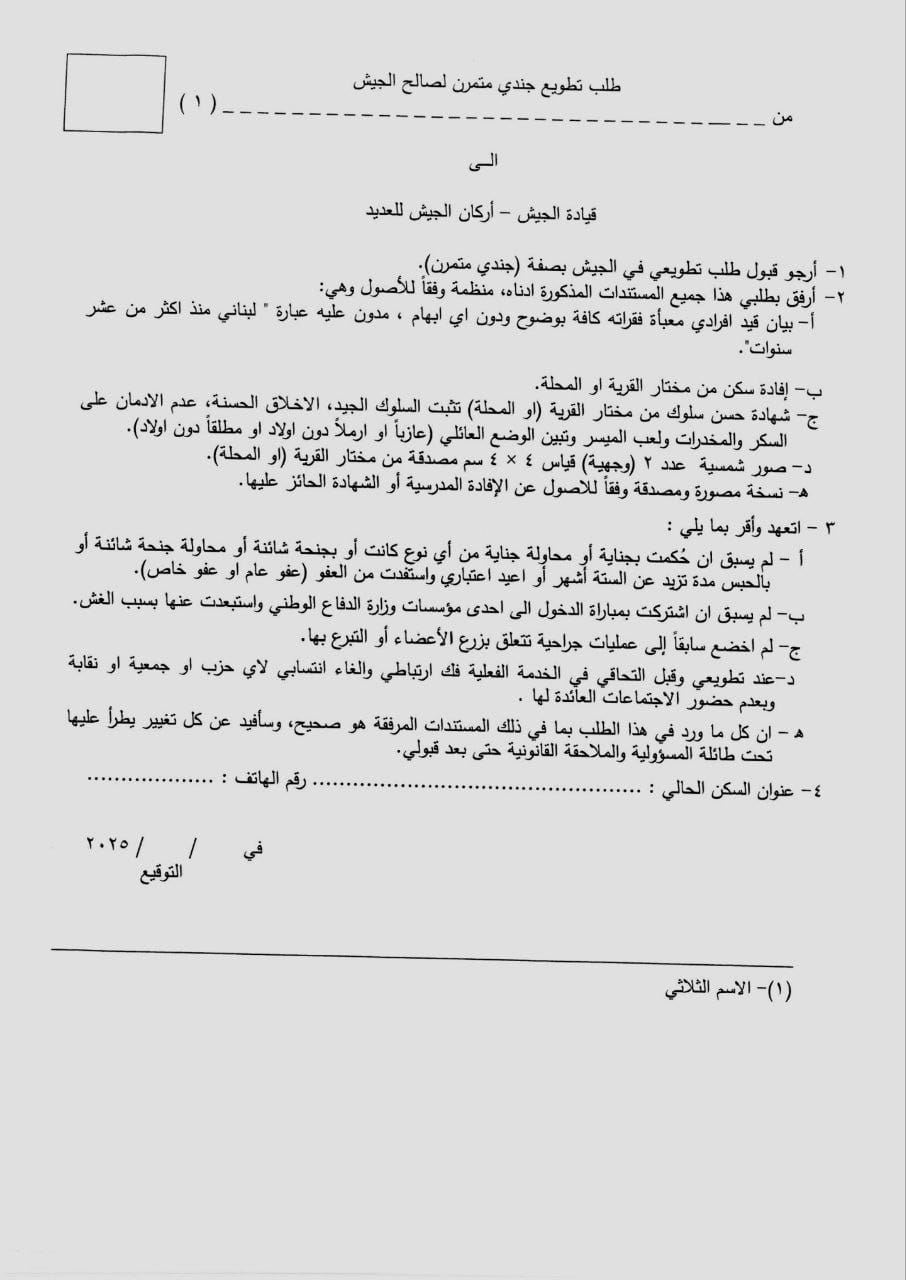 طلب تطويع جندي متمرن لصالح الجيش
من _ _ _ _ _ _ _ _ _ _ _ _ _ _ _ _ _ _ _ _ _ _ _ _ _ _ _ _ _ _ ( ١ )
الــى
قيادة الجيش – أركان الجيش للعديد
١- أرجو قبول طلب تطويعي في الجيش بصفة (جندي متمرن).
٢- أرفق بطلبي هذا جميع المستندات المذكورة ادناه، منظمة وفقاً للأصول وهي:
أ- بيان قيد افرادي معبأة فقراته كافة بوضوح ودون اي ابهام ، مدون عليه عبارة " لبناني منذ اكثر من عشر
سنوات".
ب- إفادة سكن من مختار القرية او المحلة.
ج- شهادة حسن سلوك من مختار القرية (او المحلة) تثبت السلوك الجيد، الاخلاق الحسنة، عدم الادمان على
السكر والمخدرات ولعب الميسر وتبين الوضع العائلي (عازباً او ارملاً دون اولاد او مطلقاً دون اولاد).
د- صور شمسية عدد ٢ (وجهية) قياس ٤ × ٤ سم مصدقة من مختار القرية (او المحلة).
ه- نسخة مصورة ومصدقة وفقاً للاصول عن الإفادة المدرسية أو الشهادة الحائز عليها.
٣ - اتعهد وأقر بما يلي :
أ - لم يسبق ان حُكمت بجناية أو محاولة جناية من أي نوع كانت أو بجنحة شائنة أو محاولة جنحة شائنة أو
بالحبس مدة تزيد عن الستة أشهر أو اعيد اعتباري واستفدت من العفو (عفو عام او عفو خاص).
ب- لم يسبق ان اشتركت بمباراة الدخول الى احدى مؤسسات وزارة الدفاع الوطني واستبعدت عنها بسبب الغش.
ج- لم اخضع سابقاً إلى عمليات جراحية تتعلق بزرع الأعضاء أو التبرع بها.
د-عند تطويعي وقبل التحاقي في الخدمة الفعلية فك ارتباطي والغاء انتسابي لاي حزب او جمعية او نقابة
وبعدم حضور الاجتماعات العائدة لها .
ه - ان كل ما ورد في هذا الطلب بما في ذلك المستندات المرفقة هو صحيح، وسأفيد عن كل تغيير يطرأ عليها
تحت طائلة المسؤولية والملاحقة القانونية حتى بعد قبولي.
٤- عنوان السكن الحالي : ................................................ رقم الهاتف : ...................
في / / ٢٠٢٥
التوقيع
(١)- الاسم الثلاثي